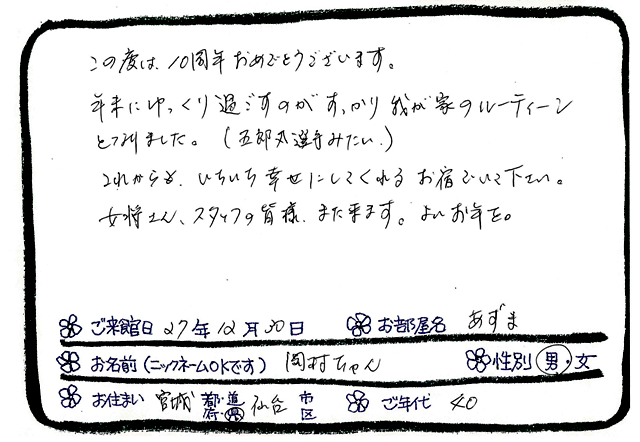 この度は、10周年おめでとうございます。
年末にゆっくり過ごすのがすっかり我が家のルーティーン
となりました。(五郎丸選手みたい。)
これからも、いちいち幸せにしてくれるお宿でいて下さい。
女将さん、スタッフの皆様、また来ます。よいお年を。
ご来館日 27年12月30日 お部屋名 あずま
お名前(ニックネームOKです) 岡村ちゃん 性別 男・女
お住まい 宮城 都・道 府・県 仙台 市 区 ご年代 40